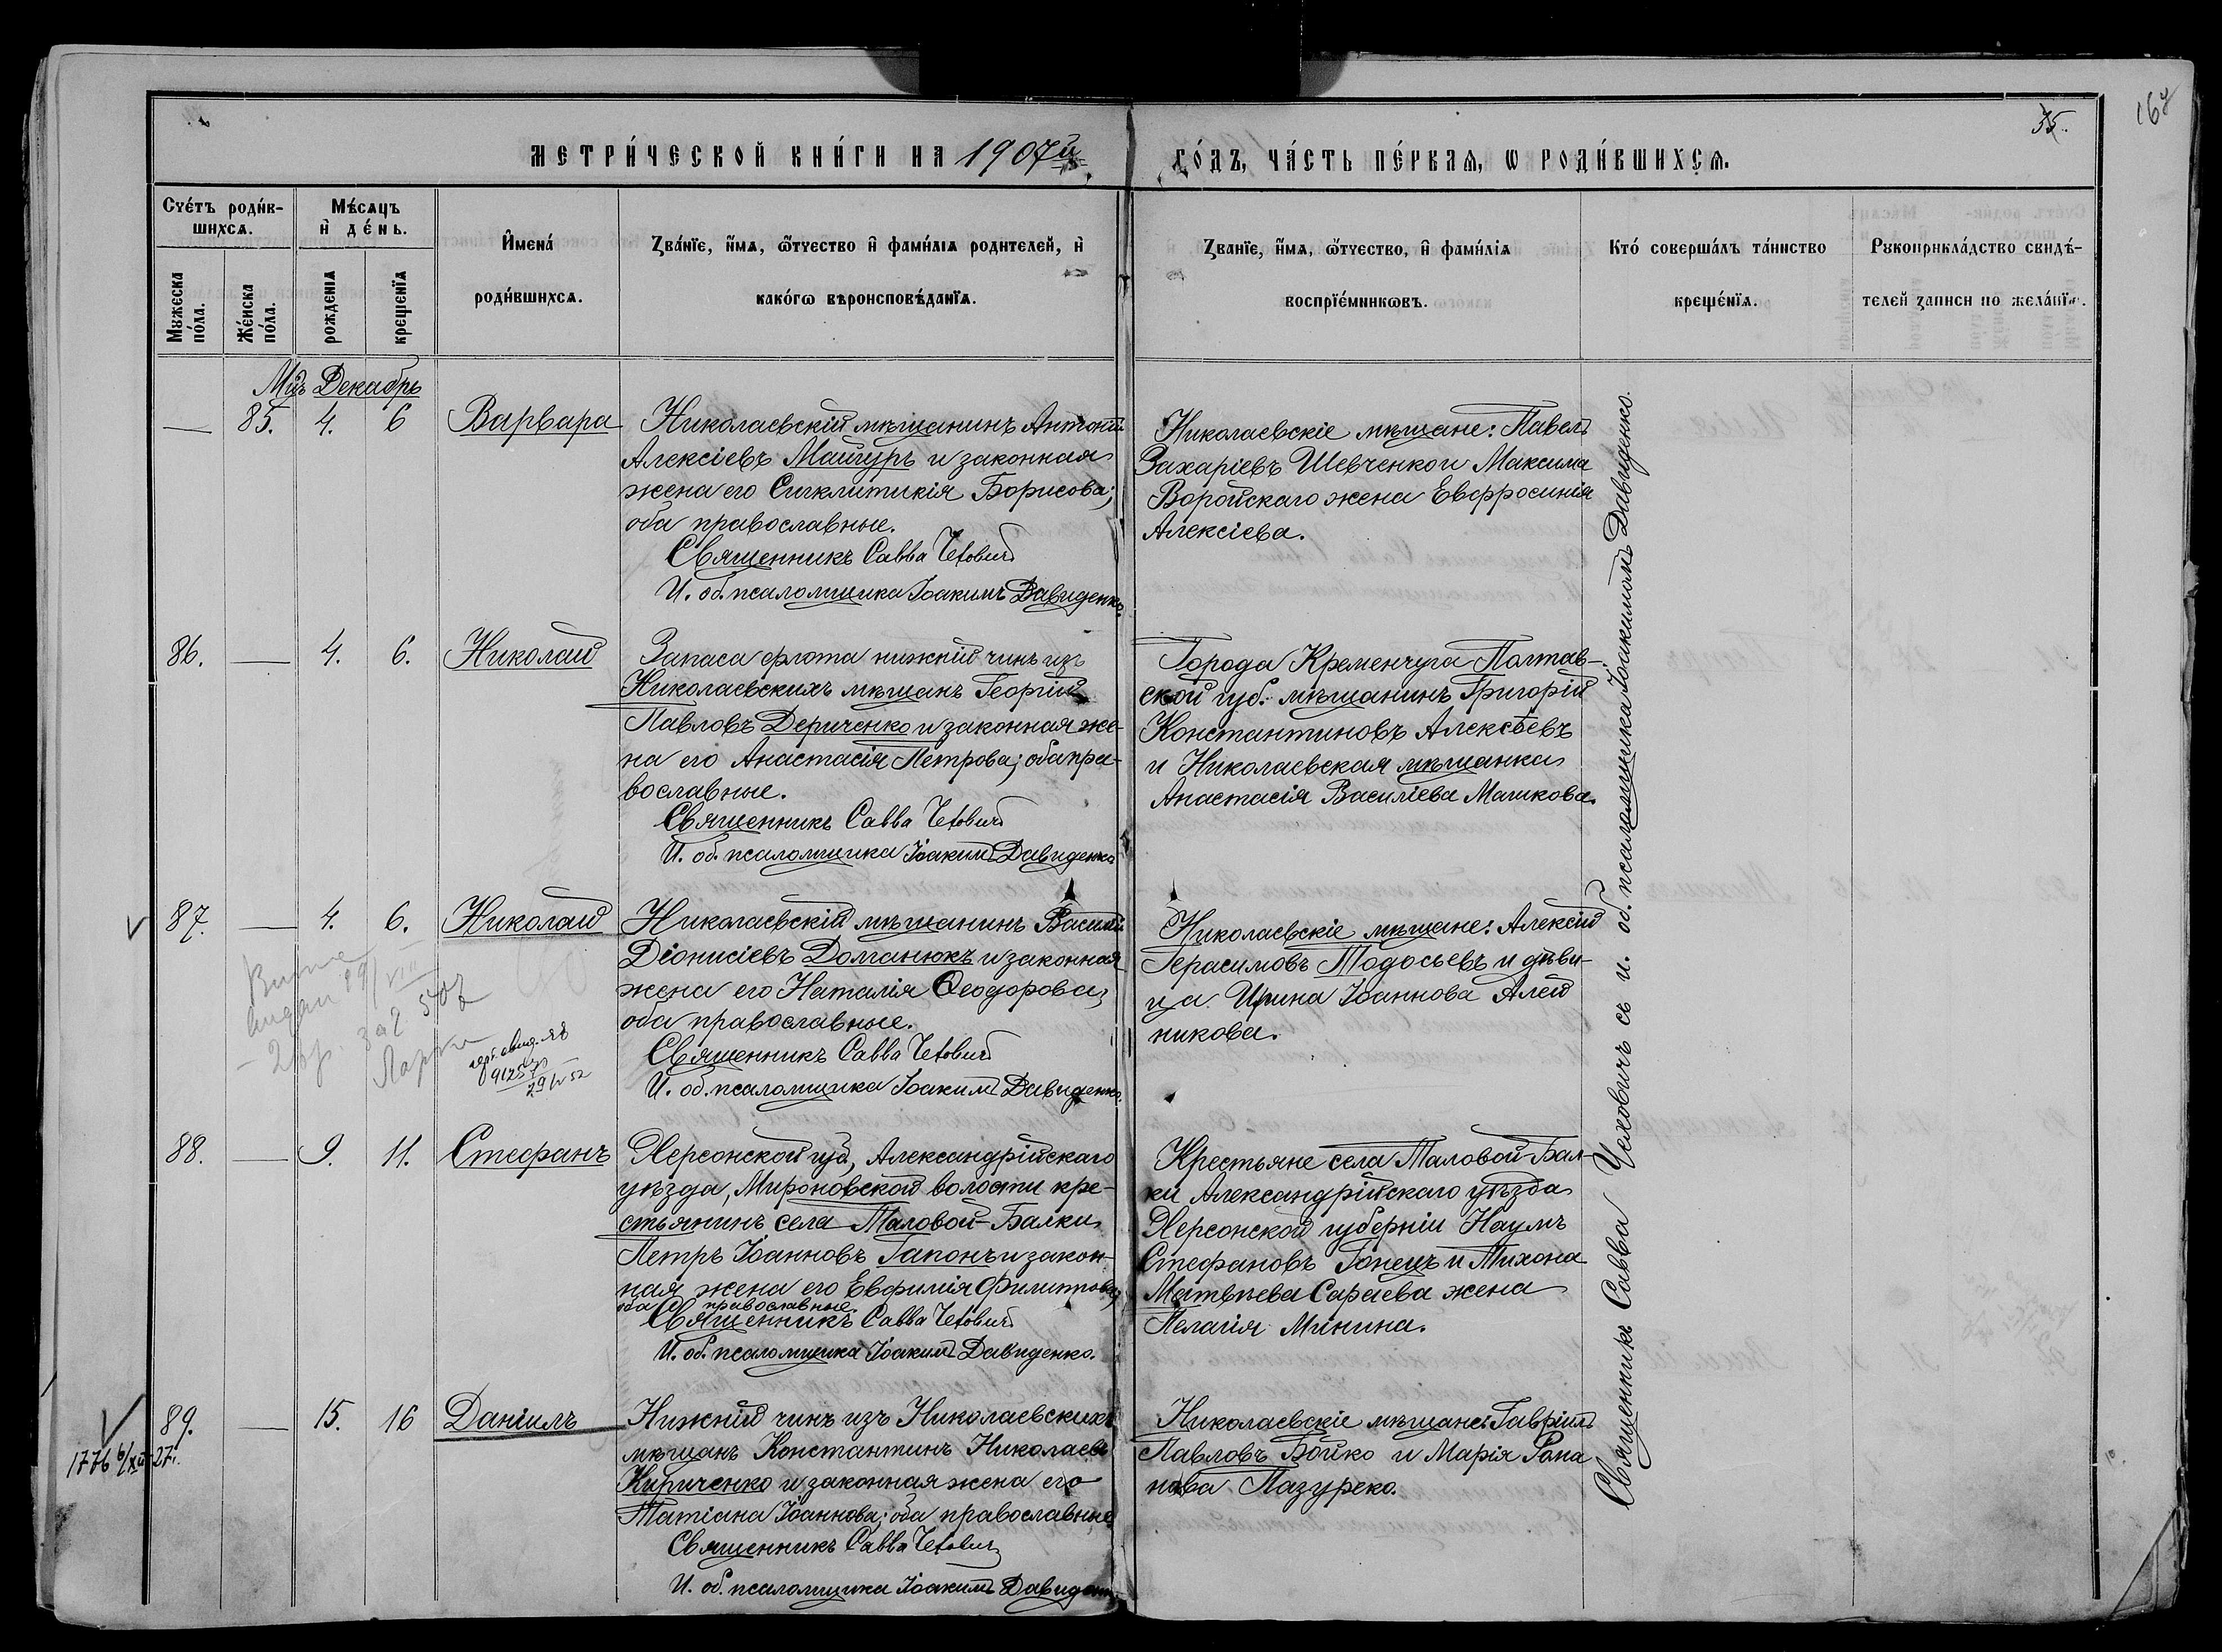 35.
168
МЕТРИ́ЧЕСКОЙ КНИ́ГИ НА 1907й
ГО́ДЪ, ЧА́СТЬ ПЕ́РВАЯ, Ѡ РОДИ́ВШИХСѦ.
Сче́тъ роди́в-
шихсѧ.
Мꙋжеска по́ла.
Же́нска по́ла.
Мѣ́сѧцъ
и҆ де́нь.
рожденїѧ
крещенїѧ
И҆мена́
роди́вшихсѧ.
Зва́нїе, и҆́мѧ, ѻ҆́тчество и҆ фами́лїѧ родителей, и҆
како́гѡ вѣроисповѣ́данїѧ.
Званїе, и҆́мѧ, ѻ҆́тчество, и҆ фами́лїѧ
воспрїе́мникѡвъ.
Кто́ соверша́лъ та́инство
креще́нїѧ.
Рꙋкоприкла́дство свидѣ́-
телей записи по жела́нїю.
Мцъ Декабрь
— 85. 4. 6 Варвара
Николаевскій мѣщанинъ Антоній
Алексіевъ Майгуръ и законная
жена его Синклитикія Борисова;
оба православные.
Священникъ Савва Чехович
И. об. псаломщика Іоакимъ Давиденко.
Николаевскіе мѣщане: Павелъ
Захаріевъ Шевченко и Максима
Воройскаго жена Евфросинія
Алексіева.
86. — 4. 6. Николай
Запаса флота нижній чинъ изъ
Николаевскихъ мѣщанъ Георгій
Павловъ Дериченко и законная же-
на его Анастасія Петрова; оба пра-
вославные.
Священникъ Савва Чехович
И. об. псаломщика Іоакимъ Давиденко
Города Кременчуга Полтав-
ской губ. мѣщанинъ Григорій
Константиновъ Алексѣевъ
и Николаевская мѣщанка
Анастасія Василіева Машкова.
87. — 4. 6. Николай
Николаевскій мѣщанинъ Василій
Діонисіевъ Доманюкъ и законная
жена его Наталія Ѳеодорова;
оба православные.
Священникъ Савва Чехович
И. об. псаломщика Іоакимъ Давиденко.
29/IV 52
Николаевскіе мѣщане: Алексій
Герасимовъ Тодосьевъ и дѣви-
ца Ирина Іоаннова Алей
никова.
88. — 9. 11. Стефанъ
Херсонской губ, Александрійскаго
уѣзда, Мироновской волости кре-
стьянинъ села Маловой-Балки
Петръ Іоанновъ Гапонъ и закон-
ная жена его Евфимія Филиппова;
оба православные.
Священникъ Савва Чехович
И. об. псаломщика Іоакимъ Давиденко.
Крестьяне села Маловой-Бал-
ки Александрійскаго уѣзда
Херсонской губерніи Наумъ
Стефановъ Гонецъ и Тихона
Матвѣева Сараева жена
Пелагія Минина.
89. — 15. 16 Даніилъ
1776 6/XII-27.
Нижній чинъ изъ Николаевскихъ
мѣщанъ Константинъ Николаевъ
Кириченко и законная жена его
Татіана Іоаннова; оба православные
Священникъ Савва Чехович
И. об. псаломщика Іоакимъ Давиденко
Николаевскіе мѣщане: Гавріилъ
Павловъ Бойко и Марія Рома
нова Пазуреко.
Священникъ Савва Чеховичъ съ и. об. псаломщика Іоакимомъ Давиденко.